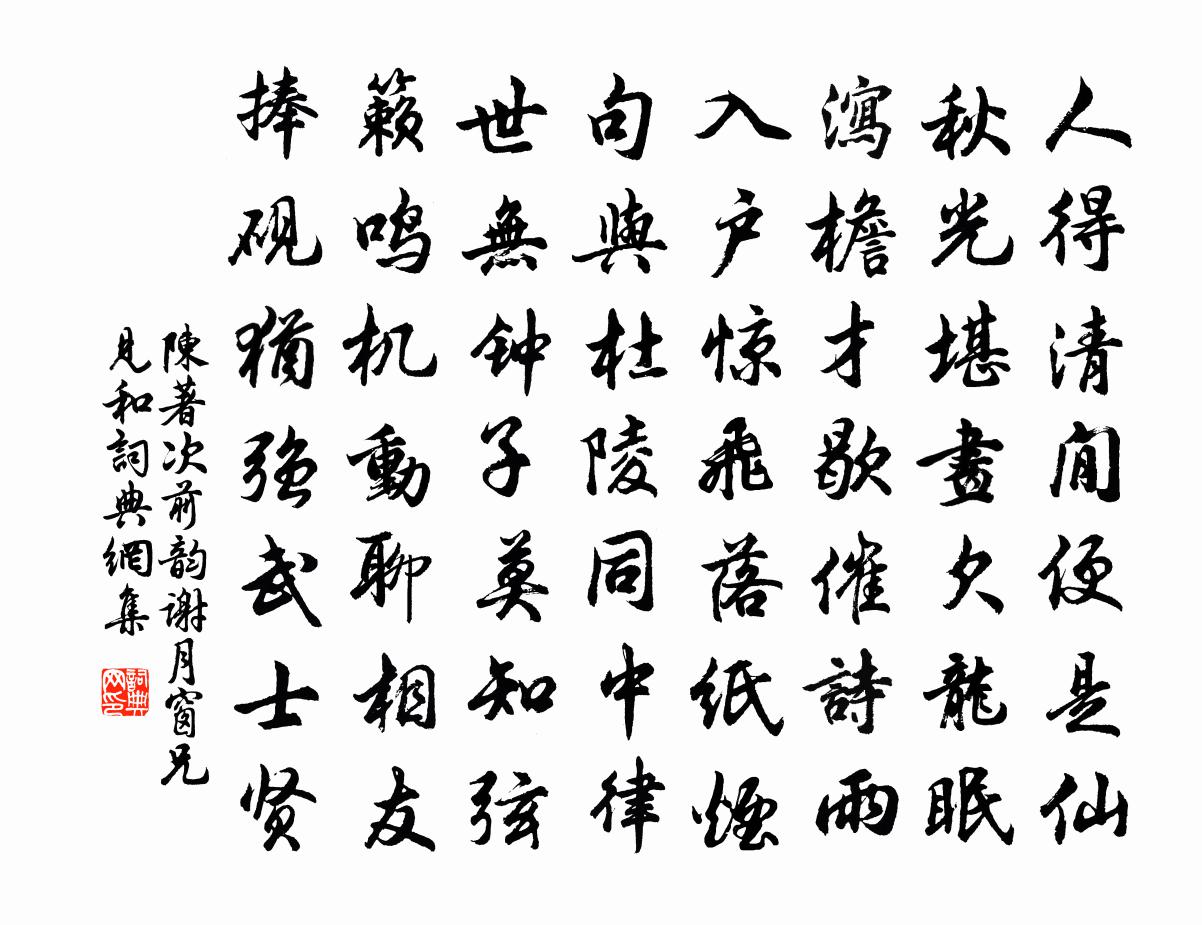 人得清閒便是仙
秋光堪畫欠龍眠
瀉檐才歇催詩雨
入户惊飛落紙煙
句與杜陵同中律
世無钟子莫知弦
籟鸣机動聊相友
捧硯猶強武士贤
陳著次前韵謝月窗兄
見和詞典網集
詞典网印